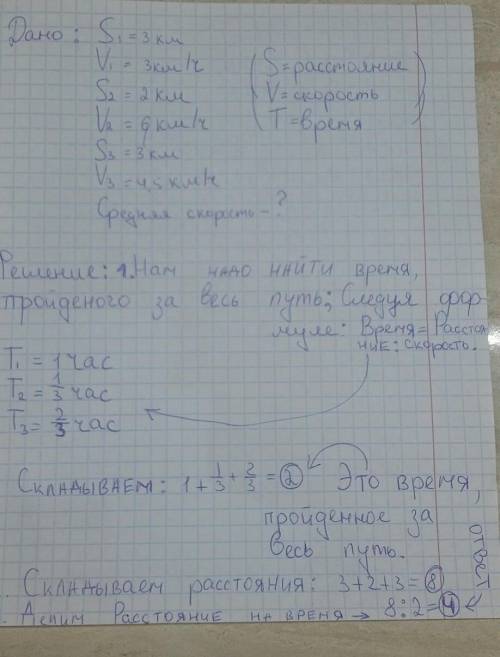 Дано: S₁ = 3 км
V₁ = 3км/ч (S = расстояние
S₂ = 2 км V = скорость
V₂ = 6 км/ч T = время)
S₃ = 3 км
V₃ = 4,5 км/ч
Средняя скорость - ?
Решение: 1. Нам надо найти время,
пройденого за весь путь; Следуя фор-
муле: Время = Расстоя-
ние : Скорость.
T₁ = 1 час
T₂ = 1/3 час
T₃ = 2/3 час
Складываем: 1 + 1/3 + 2/3 = 2 Это время,
пройденное за
весь путь.
Складываем расстояния: 3+2+3=8
Делим Расстояние на время → 8:2=4
ответ